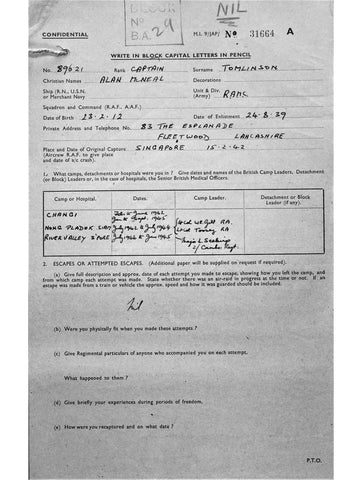 BLOCK
Nº
B.A. 29
NIL
CONFIDENTIAL
M.I. 9/JAP/ Nº 31664 A
WRITE IN BLOCK CAPITAL LETTERS IN PENCIL
No. 89621 Rank CAPTAIN Surname TOMLINSON
Christian Names ALAN McNEAL Decorations
Ship (R.N., U.S.N. or Merchant Navy) Unit & Div. (Army) RAMC.
Squadron and Command (R.A.F., A.A.F.)
Date of Birth 23·2·12 Date of Enlistment 24·8·39
Private Address and Telephone No. 83 THE ESPLANADE
FLEETWOOD LANCASHIRE
Place and Date of Original Capture SINGAPORE 15·2·42
(Aircrew R.A.F. to give place
and date of a/c crash).
1. What camps, detachments or hospitals were you in? Give dates and names of the British Camp Leaders, Detachment
(or Block) Leaders or, in the case of hospitals, the Senior British Medical Officers.
Camp or Hospital. Dates. Camp Leader. Detachment or Block Leader (if any).
CHANGI Feb. to June 1942
1945
NONG PLADUK July 1942 to July 1944 RA.
Lt Col Toosey RA
RIVER VALLEY July 1944 to Jan 1945 Major
2. ESCAPES OR ATTEMPTED ESCAPES. (Additional paper will be supplied on request if required).
(a) Give full description and approx. date of each attempt you made to escape, showing how you left the camp, and
from which camp each attempt was made. State whether there was an air-raid in progress at the time or not. If an
escape was made from a train or vehicle the approx. speed and how it was guarded should be included.
Nil
(b) Were you physically fit when you made these attempts?
(c) Give Regimental particulars of anyone who accompanied you on each attempt.
What happened to them?
(d) Give briefly your experiences during periods of freedom.
(e) How were you recaptured and on what date?
P.T.O.